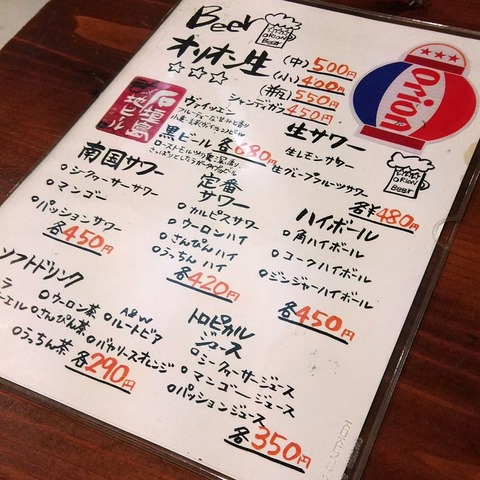 Beer
ORION
BEER
オリオン生 (中)500円
☆☆☆ (小)400円
(瓶)550円
シャンディガフ 450円
Orion
石垣島
地ビール
ヴァイツェン
黒ビール 各680円
生サワー
生レモンサワー
生グレープフルーツサワー
各¥480円
ORION
BEER
南国サワー
○シークァーサーサワー
○マンゴー
○パッションサワー
各450円
定番
サワー
○カルピスサワー
○ウーロンハイ
○さんぴんハイ
○うっちんハイ
各420円
ハイボール
○角ハイボール
○コークハイボール
○ジンジャーハイボール
各450円
ソフトドリンク
○ウーロン茶
○さんぴん茶
○うっちん茶
A&W
○ルートビア
○バヤリースオレンジ
各290円
トロピカル
ジュース
○シークァーサージュース
○マンゴージュース
○パッションジュース
各350円